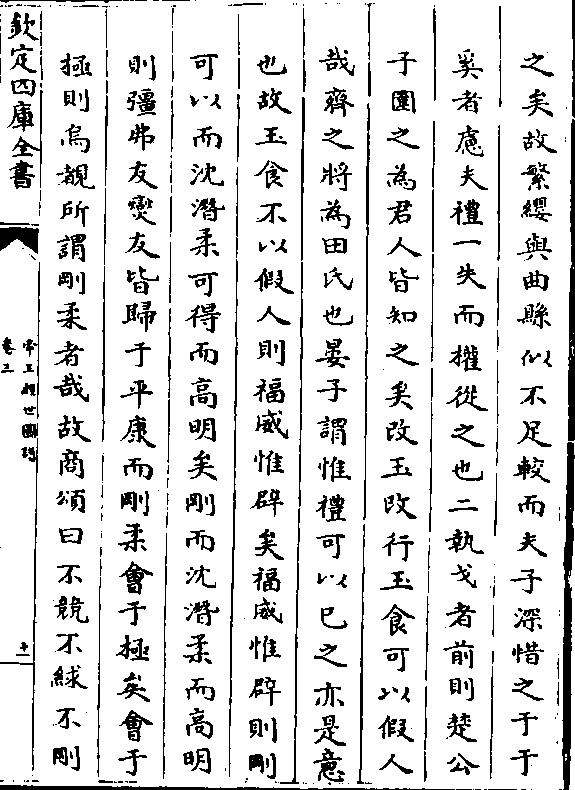 之矣故繁纓與曲縣似不足較而夫子深惜之于于
奚者慮夫禮一失而權從之也二執戈者前則楚公
子圍之為君人皆知之矣改玉改行玉食可以假人
哉齊之將為田氏也晏子謂惟禮可以已之亦是意
也故玉食不以假人則福威惟辟矣福威惟辟則剛
可以而沈潛柔可得而高明矣剛而沈潛柔而高明
則彊弗友燮友皆歸于平康而剛柔會于極矣會于
極則烏覩所謂剛柔者哉故商頌曰不競不絿不剛
欽定四庫全書
帝王經世圖譜
卷三